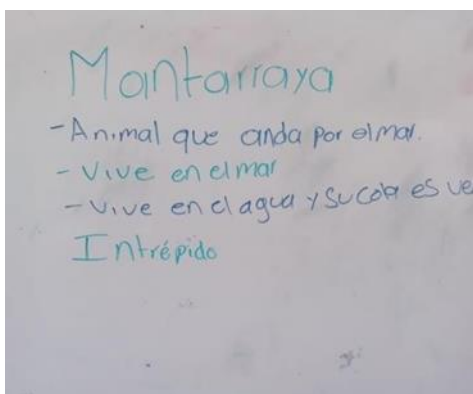 Mantarraya
-Animal que anda por el mar.
- Vive en el mar
- Vive en el agua y su cola es ve
Intrépido